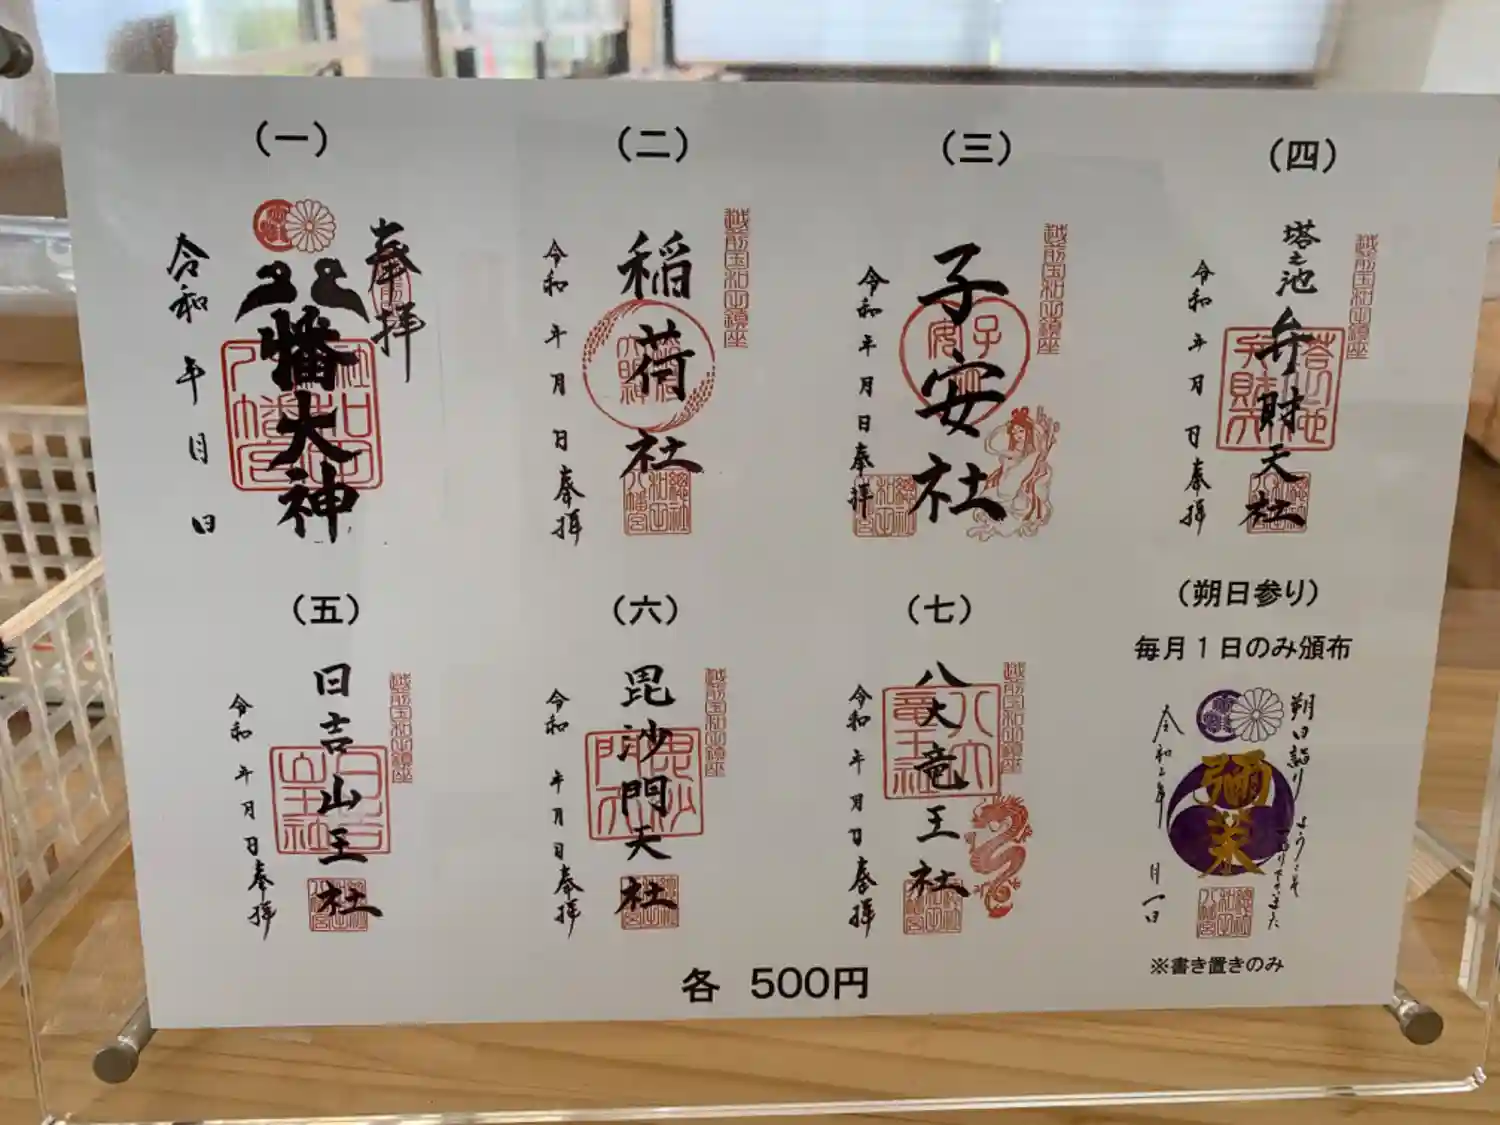 （一）
奉拝
八幡大神
令和 年 月 日
（二）
越前国和田鎮座
稲荷社
令和 年 月 日 奉拝
（三）
越前国和田鎮座
子安社
令和 年 月 日 奉拝
（四）
越前国和田鎮座
塔之池
弁財天社
令和 年 月 日 奉拝
（五）
越前国和田鎮座
日吉山王社
令和 年 月 日 奉拝
（六）
越前国和田鎮座
毘沙門天社
令和 年 月 日 奉拝
（七）
越前国和田鎮座
八大竜王社
令和 年 月 日 奉拝
（朔日参り）
毎月１日のみ頒布
朔日詣り
ようこそ
彌栄
月一日
※書き置きのみ
各 500円